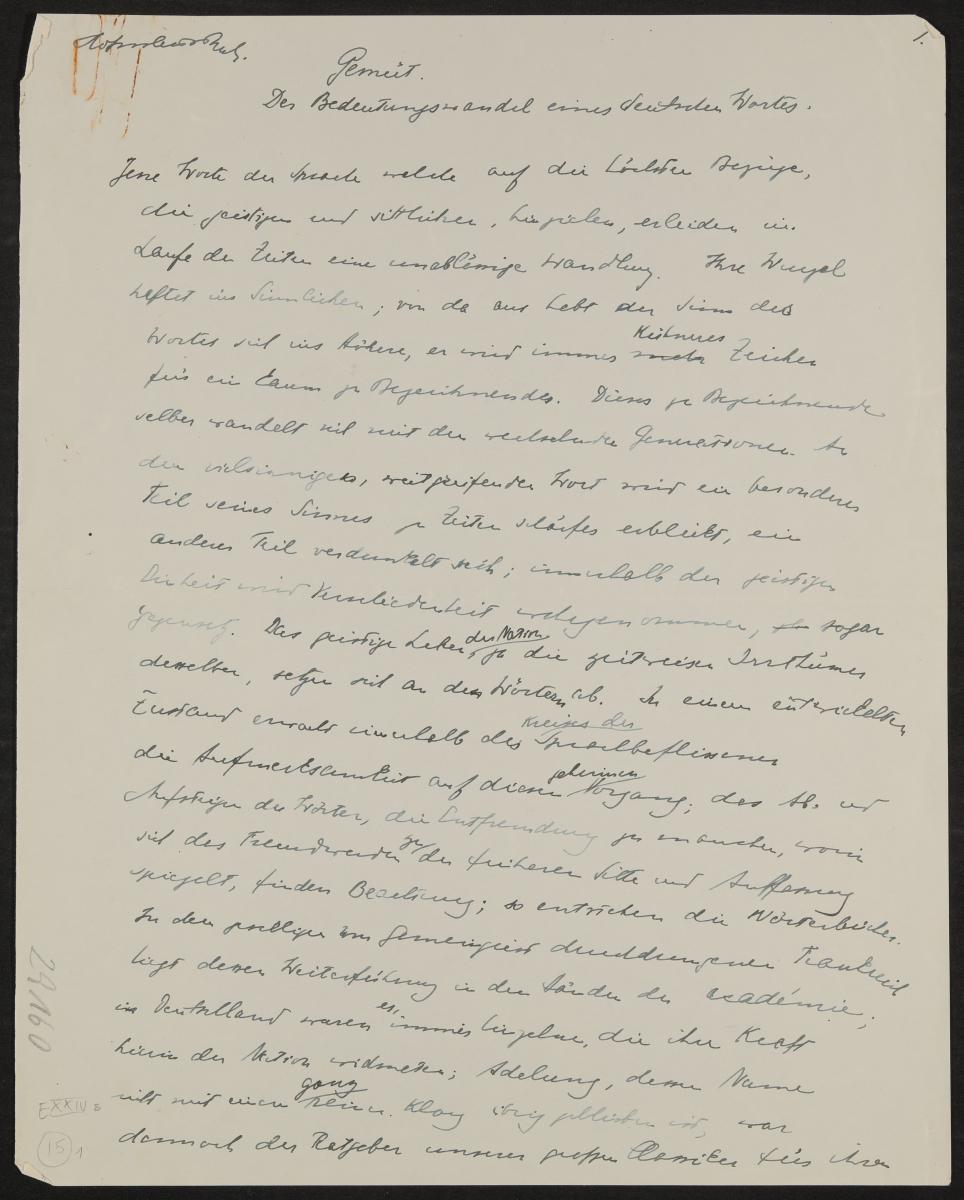 1.
Gemüt.
Der Bedeutungswandel eines deutschen Wortes.
Jene Worte der Sprache welche auf die höchsten Bezüge,
die geistigen und sittlichen, hinzielen, erleiden im
Laufe der Zeiten eine unablässige Wandlung. Ihre Wurzel
haftet im Sinnlichen; von da aus hebt der Sinn des
Wortes sich ins Höhere, er wird immer
kühneres
mehr Zeichen
für ein kaum zu Bezeichnendes. Dieses zu Bezeichnende
selber wandelt sich mit den wechselnden Generationen. An
dem vielsinnigen, weitgreifenden Wort wird ein besonderer
Teil seines Sinnes zu Zeiten schärfer erblickt, ein
anderer Teil verdunkelt sich; innerhalb der geistigen
Einheit wird Verschiedenheit wahrgenommen, sogar
Gegensatz. Das geistige Leben der Nation, ja die zeitweisen Irrtümer
derselben, setzen sich an den Wörtern ab. In einem entwickelten
Zustand erwacht innerhalb des Kreises der Sprachbeflissenen
die Aufmerksamkeit auf diesen geheimen Vorgang; das Ab- und
Aufsteigen der Wörter, die Entfremdung zu manchen, worin
sich das Fremdwerden zu der früheren Sitte und Auffassung
spiegelt, finden Beachtung; so entstehen die Wörterbücher.
In dem geselligen von Gemeingeist durchdrungenen Frankreich
liegt deren Weiterführung in den Händen der académie;
in Deutschland waren es immer Einzelne, die ihre Kraft
hierin der Nation widmeten; Adelung, dessen Name
nicht mit einem ganz reinen Klang übrig geblieben ist, war
dennoch der Ratgeber unserer grossen Classiker für ihren
29160
EXXIV 8
15 1